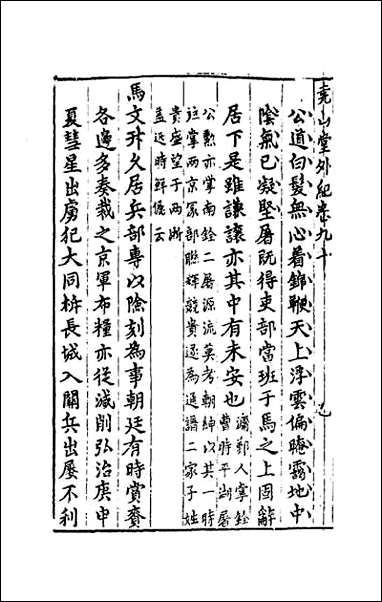 堯山堂外紀卷九十
公道白髮無心着錦鞭天上浮雲偏晻靄地中
陰氣已凝堅屠既得吏部當班于馬之上固辭
居下是雖謙讓亦其中有未安也
滽鄞人掌銓
曹時平湖屠
公勲亦掌南銓二屠源流莫考朝紳以其一時
往掌兩京冢部聯輝競貴遂為通譜二家子姓
貴盛望于兩浙
蓋近時鮮儷云
馬文升久居兵部專以陰刻為事朝廷有時賞賚
各邊多奏裁之京軍布糧亦從減削弘治庚申
夏彗星出虜犯大同拆長城入關兵出屢不利